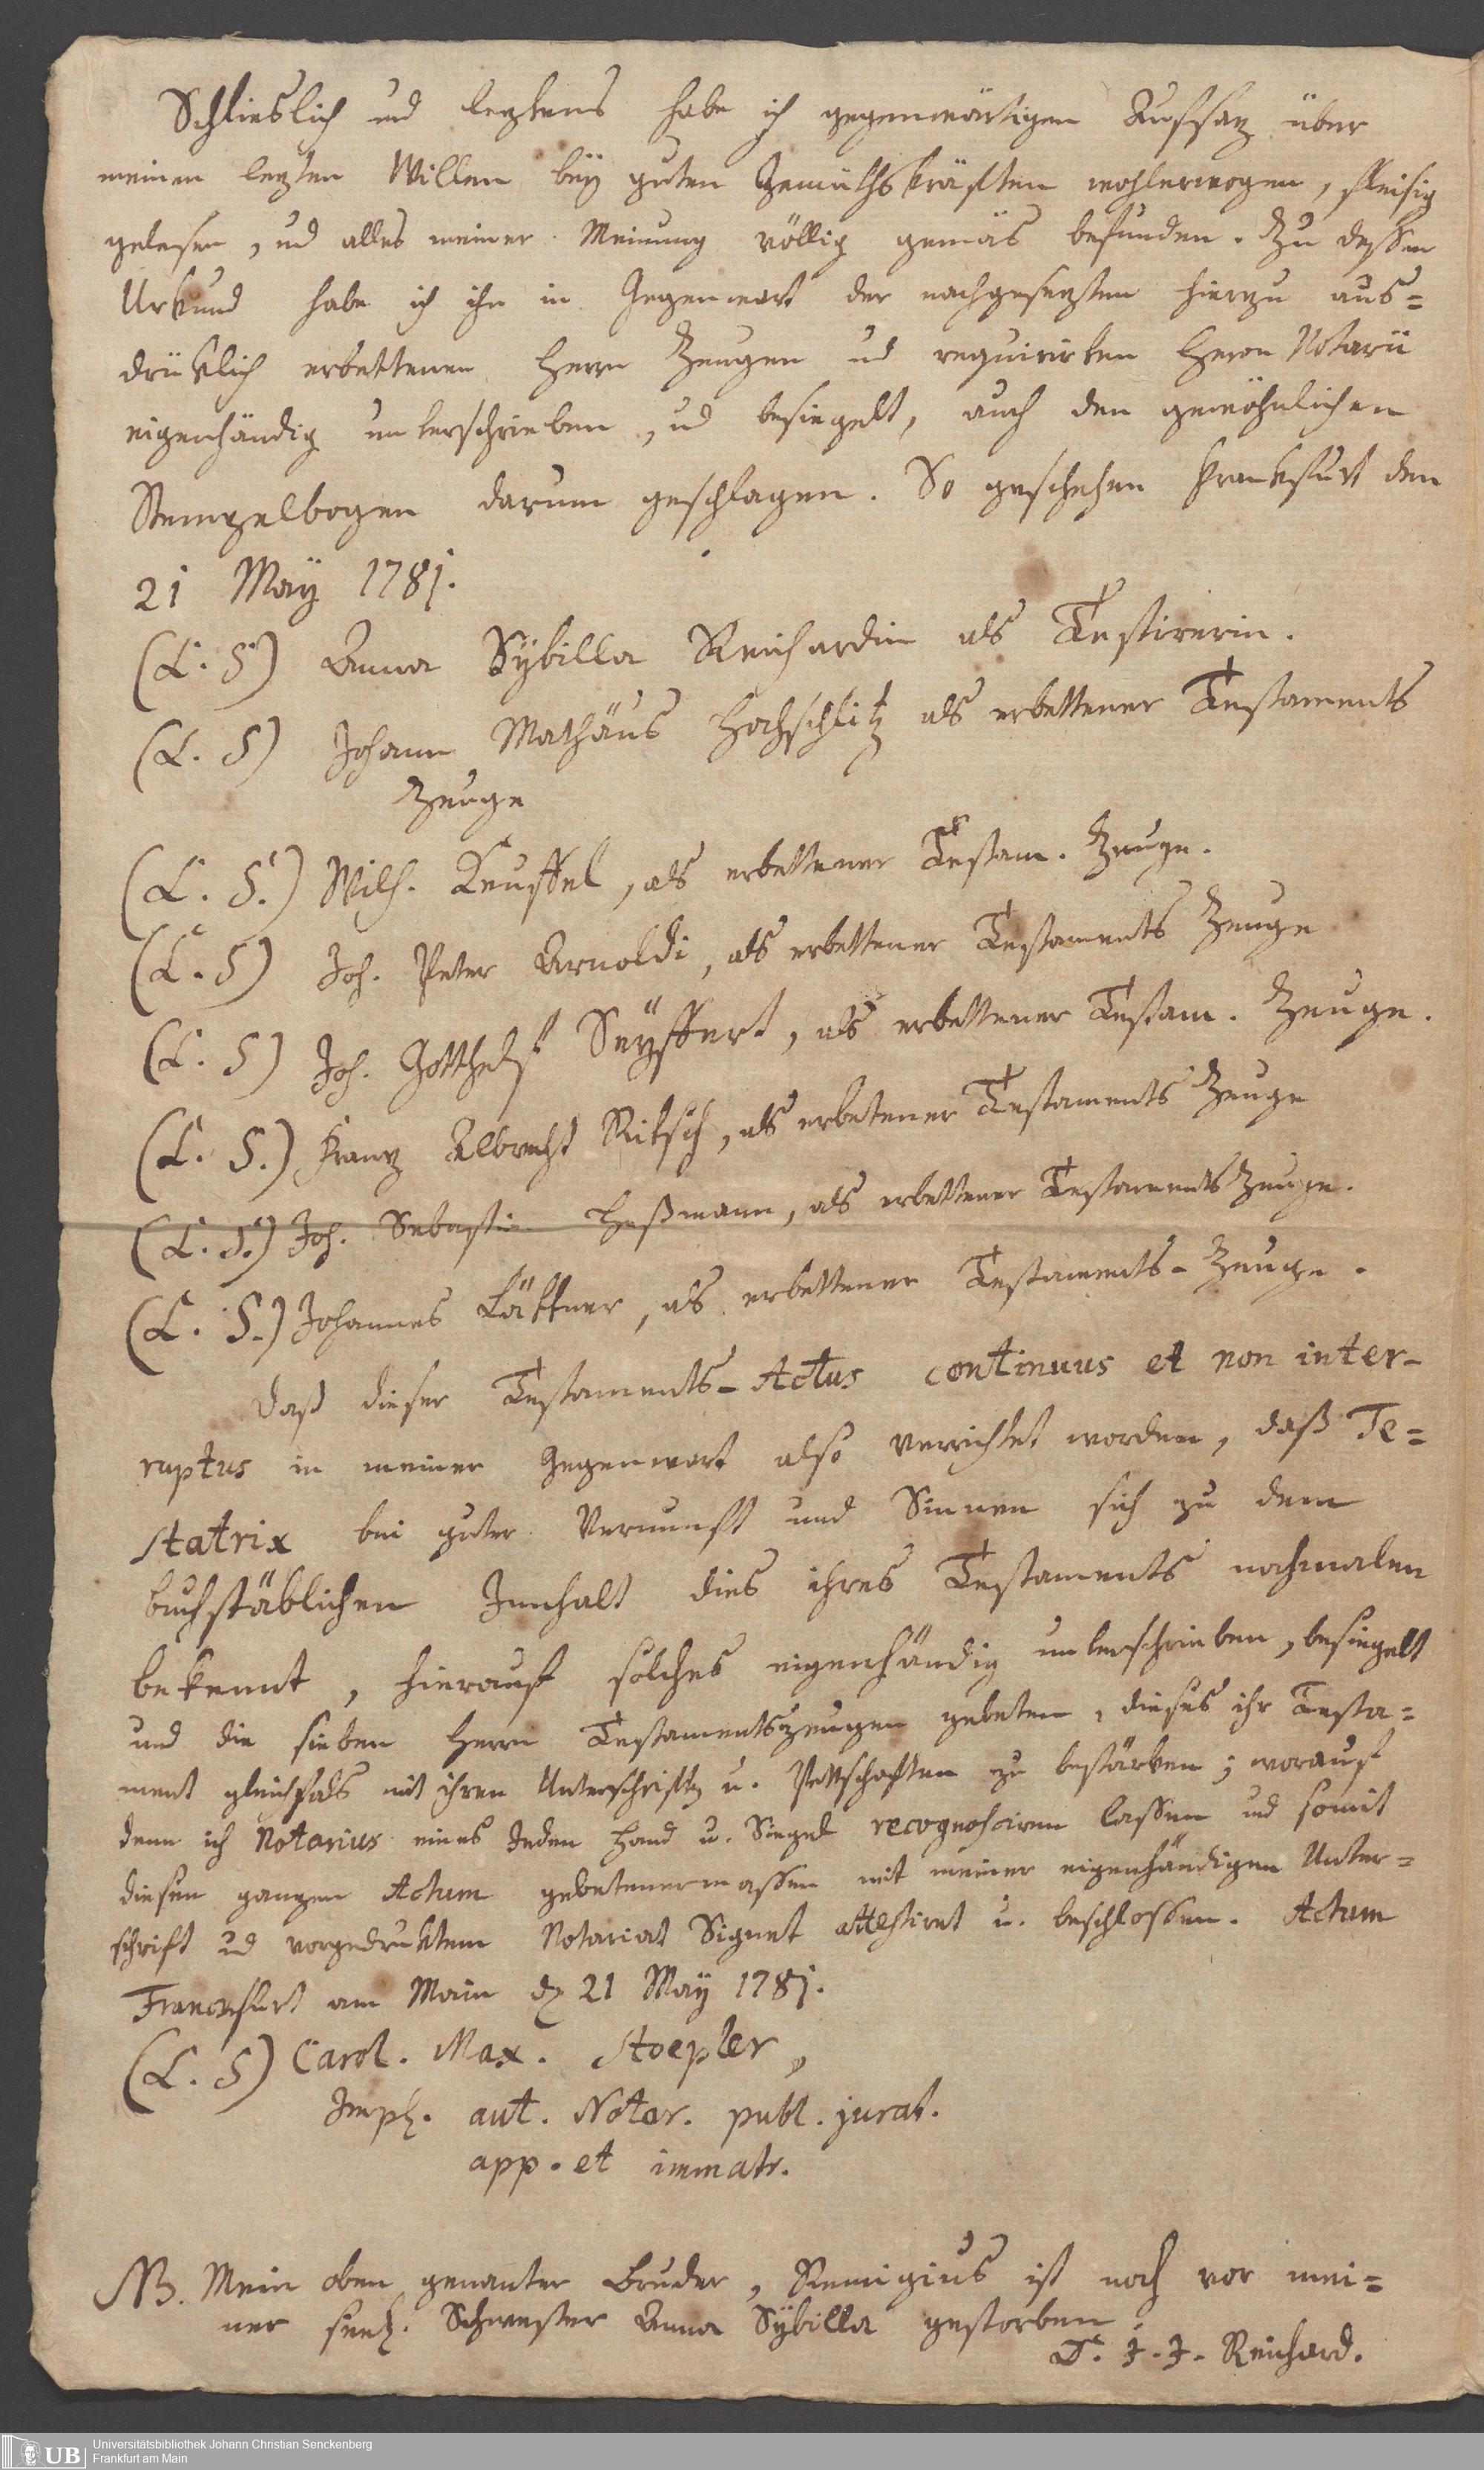 Schlieslich und leztens habe ich gegenwärtigen Aufsaz über
meinen lezten Willen bey guten Gemüthskräften wohlerwogen, fleisig
gelesen, und alles meiner Meinung völlig gemäs befunden. Zu dessen
Urkund habe ich ihn in Gegenwart der nachgesezten hierzu aus=
drüklich erbettenen Herrn Zeugen und requirirten Herrn Notarii
eigenhändig unterschrieben, und besiegelt, auch den gewöhnlichen
Stempelbogen darum geschlagen. So geschehen Frankfurt den
21 May 1781.
(L. S) Anna Sybilla Reichardin als Testirerin.
(L. S) Johann Mathäus Hochschlitz als erbettener Testaments
Zeuge
(L. S.) Wilh. Keuffel, als erbettener Testam. Zeuge.
(L. S) Joh. Peter Arnoldi, als erbettener Testaments Zeuge
(L. S) Joh. Gotthelf Seyffert, als erbettener Testam. Zeuge.
(L. S.) Franz Albrecht Ritsch, als erbetener Testaments Zeuge
(L. S.) Joh. Sebastian Heßmann, als erbettener Testaments Zeuge.
(L. S.) Johannes Lättner, als erbettener Testaments-Zeuge.
Daß dieser Testaments-Actus continuus et non inter-
ruptus in meiner Gegenwart also verrichtet worden, daß Te=
statrix bei guter Vernunft und Sinnen sich zu dem
buchstäblichen Innhalt dies ihres Testaments nochmalen
bekennt, hierauf solches eigenhändig unterschrieben, besiegelt
und die sieben Herrn Testamentszeugen gebeten, dieses ihr Testa=
ment gleichfals mit ihren Unterschriften u. Pettschaften zu bestärken; worauf
denn ich Notarius eines Jeden Hand u. Siegel recognosciren lassen und somit
diesen ganzen Actum gebetenermassen mit meiner eigenhändigen Unter=
schrift und vorgedruktem Notariat Signet attestirt u. beschlossen. Actum
Franckfurt am Main d. 21 May 1781.
(L. S) Carol. Max. Stoepler,
Imp. aut. Notar. publ. jurat.
app. et immatr.
NB. Mein oben genanter Bruder, Remigius ist noch vor mei=
ner seel. Schwester Anna Sybilla gestorben.
D. J. J. Reichard.
UB Universitätsbibliothek Johann Christian Senckenberg
Frankfurt am Main